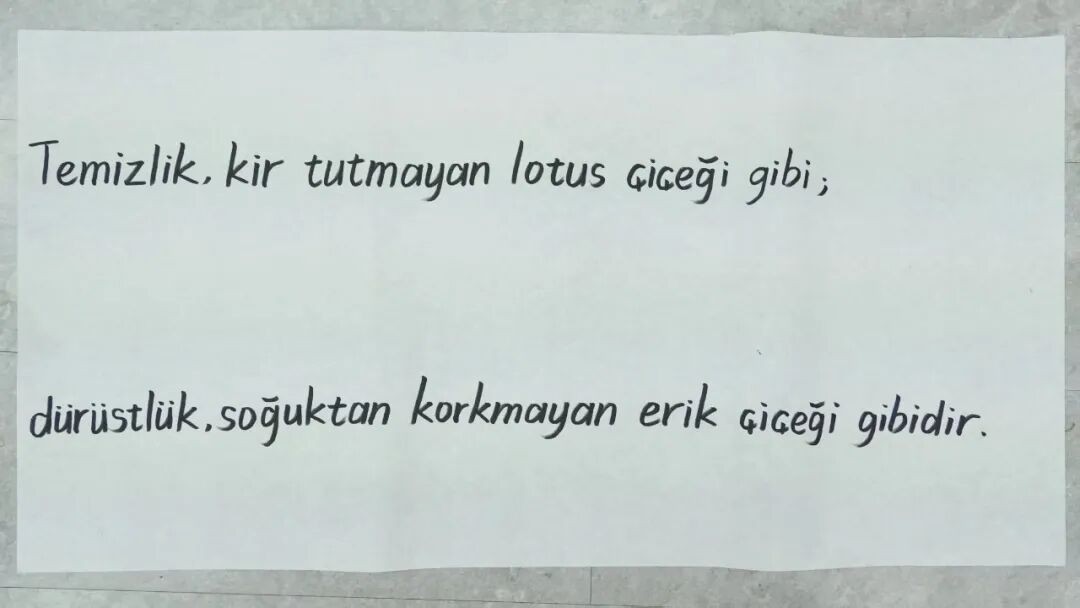 Temizlik, kir tutmayan lotus çiçeği gibi;
dürüstlük, soğuktan korkmayan erik çiçeği gibidir.